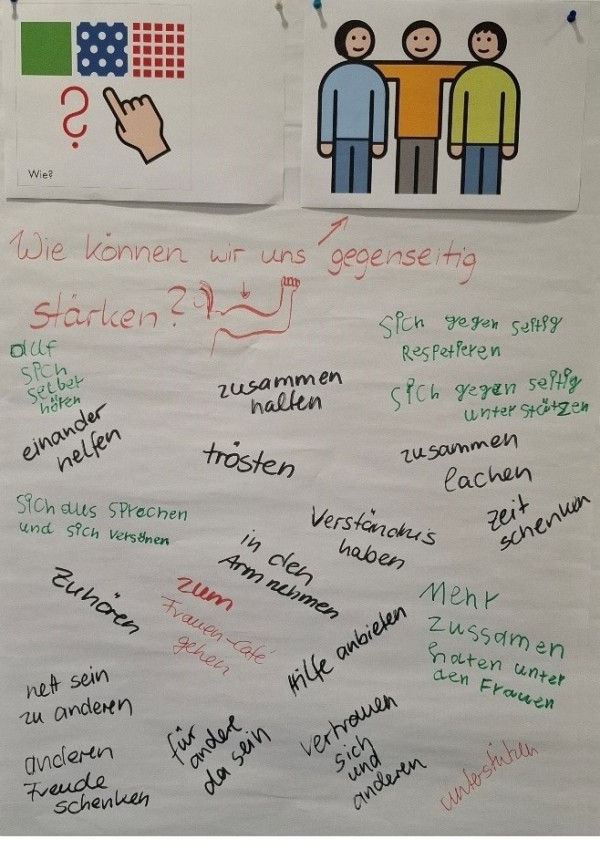 Wie?
Wie können wir uns gegenseitig
stärken?
auf
sich
selber
hören
sich gegen seitig
Respetieren
zusammen
halten
sich gegen seitig
unterstützen
einander
helfen
trösten
zusammen
lachen
zeit
schenken
sich aus sprachen
und sich versönen
Verständnis
haben
in den
Arm nehmen
Zuhören
zum
Frauen-Café
gehen
Hilfe anbieten
Mehr
zussamen
haten unter
den Frauen
nett sein
zu anderen
für
andere
da sein
vertrauen
sich
und
anderen
anderen
Freude
schenken
unterstützen